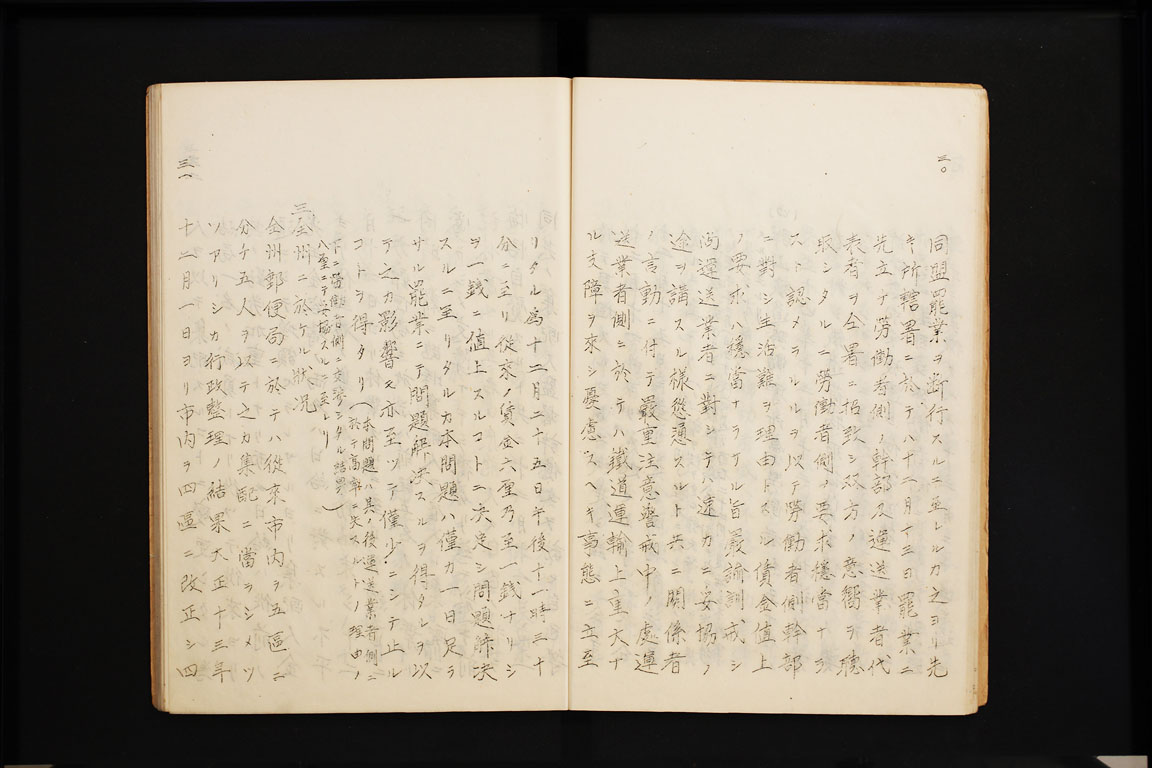 三〇
同盟罷業ヲ断行スルニ至レルカ之ヨリ先
キ所轄署ニ於テハ十二月十三日罷業ニ
先立ナ労働者側ノ幹部及運送業者代
表者ヲ仝署ニ招致シ双方ノ意嚮ヲ聴
取シタルニ労働者側ノ要求穏當ナラ
スト認メラルルヲ以テ労働者側幹部
ニ對シ生活難ヲ理由トスル賃金値上
ノ要求ハ穏當ナラサル旨厳諭訓戒シ
尚運送業者ニ對シテハ速カニ妥協ノ
途ヲ講スル様慫慂スルト共ニ関係者
ノ言動ニ付テ嚴重注意警戒中ノ處運
送業者側ニ於テハ鐵道運輸上重大ナ
ル支障ヲ來シ憂慮スヘキ事態ニ立至
リタル為十二月二十五日午後十一時三十
分ニ至リ從來ノ賃金六厘乃至一銭ナリシ
ヲ一銭ニ値上スルコトニ決定シ問題解決
スルニ至リタルカ本問題ハ僅カ一日足ラ
サル罷業ニテ問題解決スルヲ得タルヲ以
テ之カ影響モ亦至ツテ僅少ニシテ止ル
コトヲ得タリ(本問題ハ其ノ後運送業者側ニ
於テ高率ニ失スルトノ理由ノ
下ニ労働者側ニ交渉シタル結果
八厘ニテ妥協スルニ至レリ)
三、全州ニ於ケル状况
全州郵便局ニ於テハ從來市内ヲ五區ニ
分チ五人ヲ以テ之カ集配ニ當ラシメツ
ツアリシカ行政整理ノ結果大正十三年
十二月一日ヨリ市内ヲ四區ニ改正シ四
三一